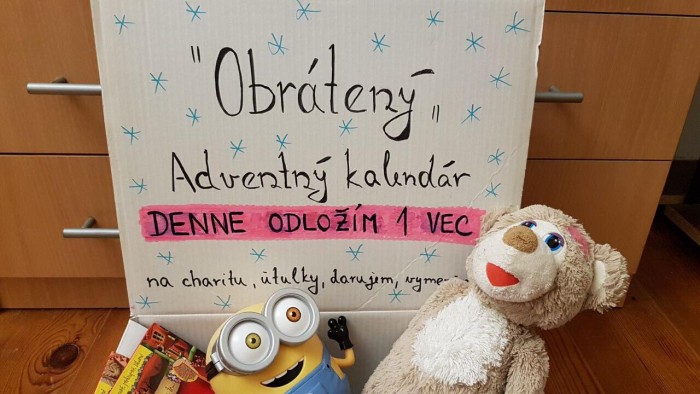 "Obrátený"
Adventný kalendár
DENNE ODLOŽÍM 1 VEC
na charitu, útulky, darujem,